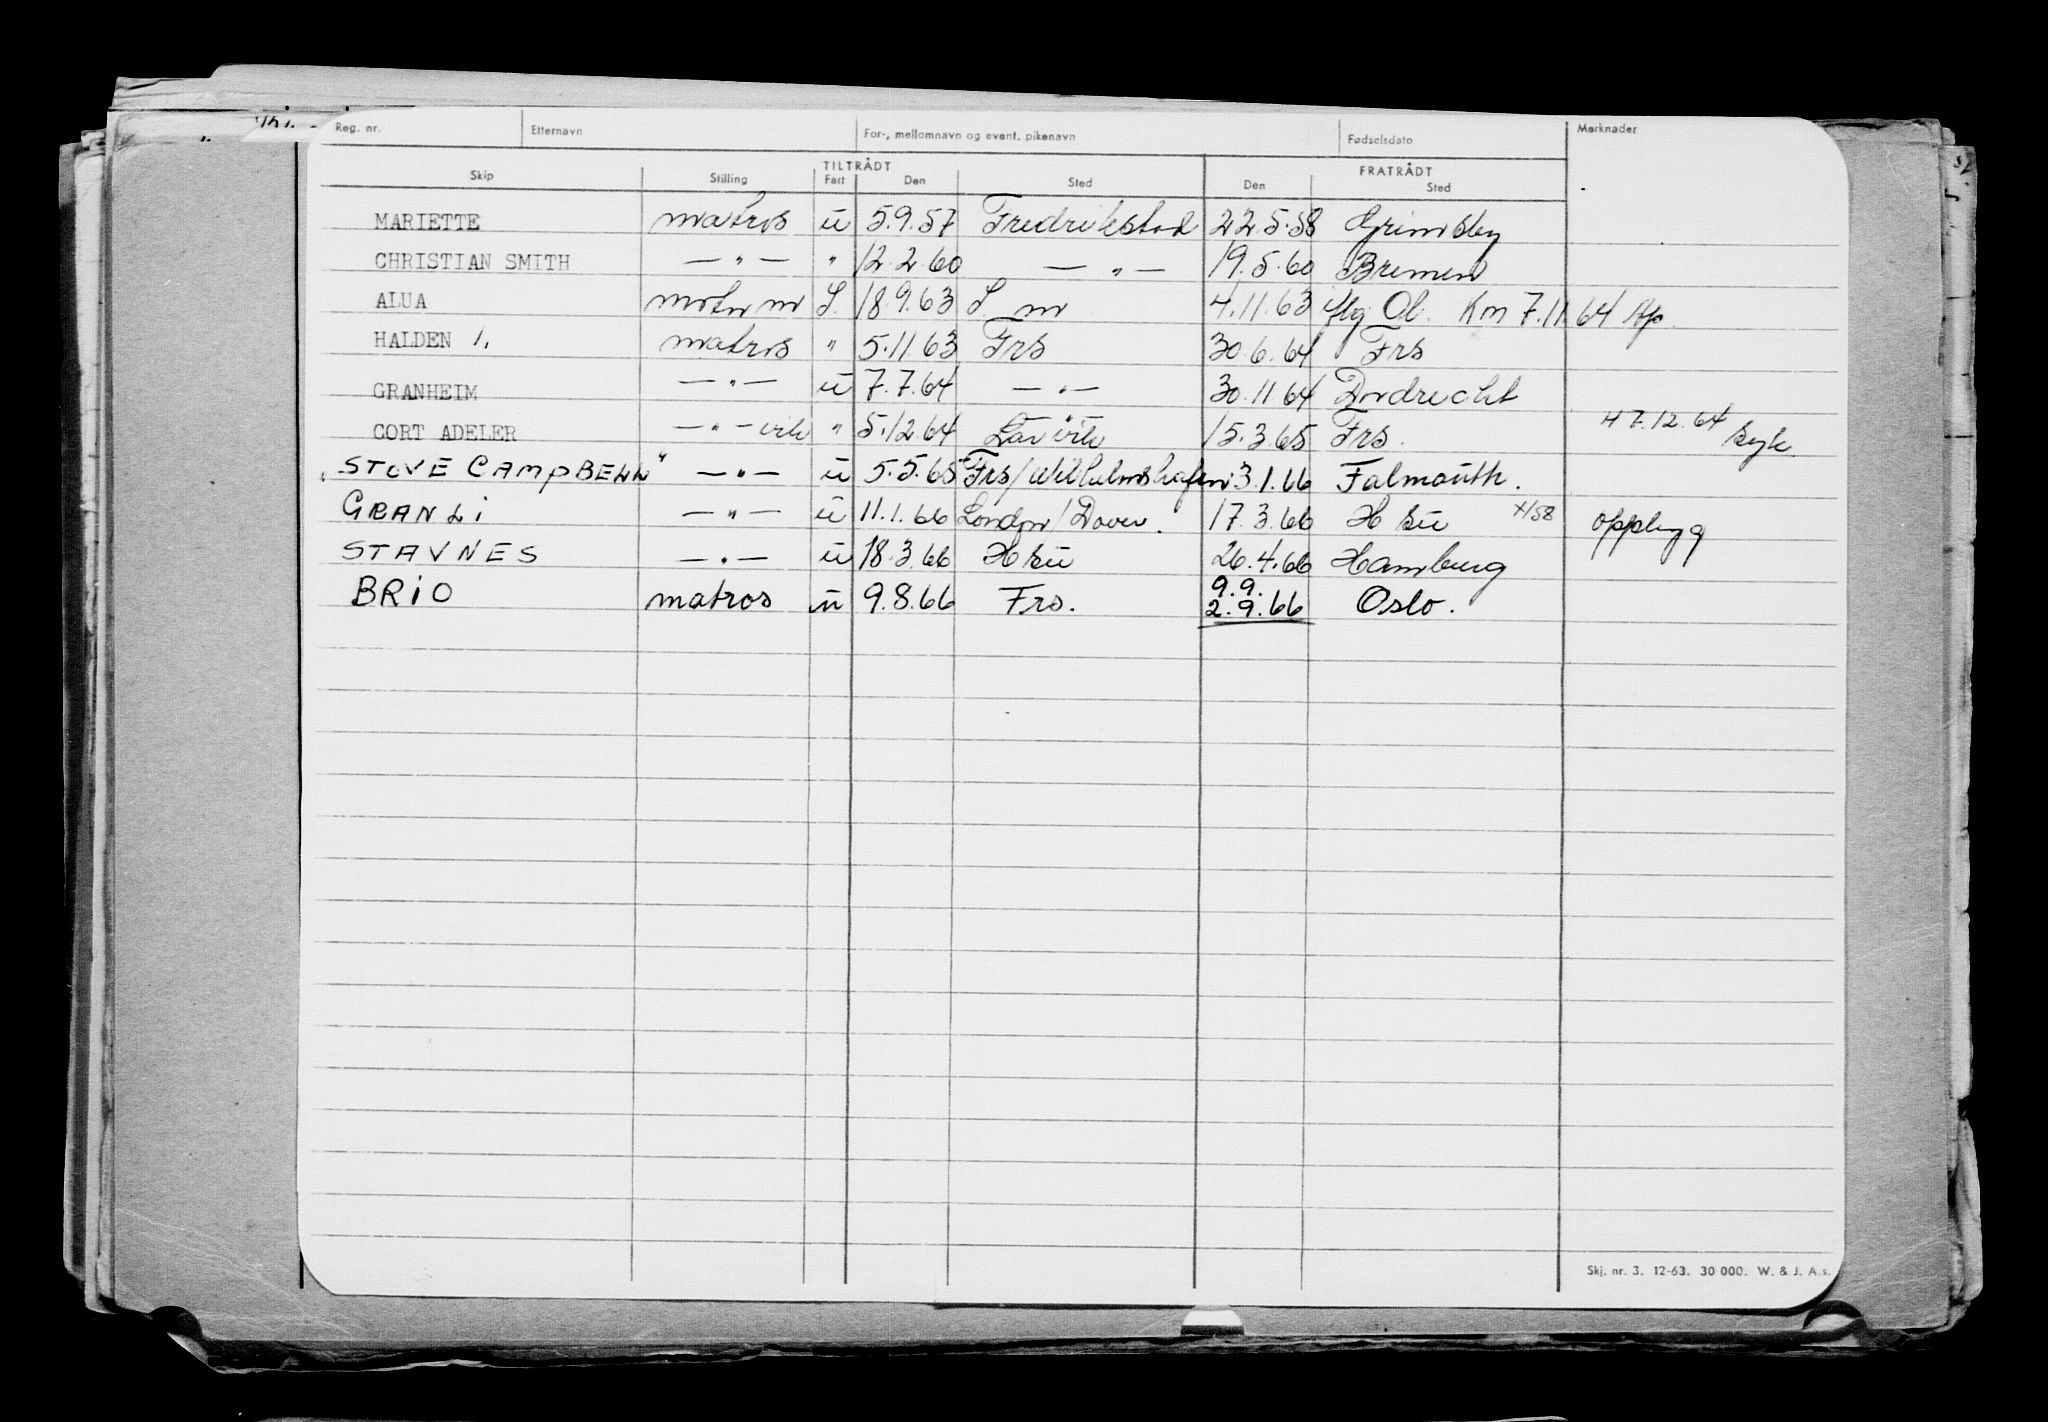 Reg. nr. Etternavn For-, mellomnavn og event. pikenavn Fødselsdato Merknader
TILTRÅDT FRATRÅDT
Skip Stilling Fart Den Sted Den Sted
MARIETTE matros u 5.9.57 Fredrikstad 22.5.58 Grimsby
CHRISTIAN SMITH — " — " 12.2.60 — " — 19.5.60 Bremen
ALUA S. 18.9.63 4.11.63 Km 7.11.64
HALDEN 1. matros " 5.11.63 Frs 30.6.64 Frs
GRANHEIM — " — u 7.7.64 — " — 30.11.64 Dordrecht
CORT ADELER — " — " 5.12.64 Larvik 15.3.65 Frs. 7.12.64 syk
"STOVE CAMPBELL" — " — u 5.5.65 Frs/Wilhelmshafen 3.1.66 Falmouth.
GRANLI — " — u 11.1.66 London/Dover. 17.3.66 H su X/58 opplegg
STAVNES — " — u 18.3.66 H su 26.4.66 Hamburg
BRIO matros u 9.8.66 Frs. 9.9. 2.9.66 Oslo.
Skj. nr. 3. 12-63. 30 000. W. & J. A.s.